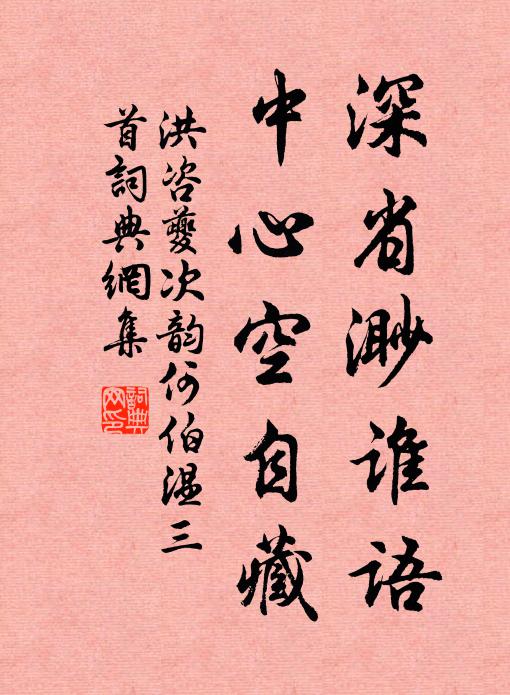 深省渺谁语
中心空自藏
洪咨夔次韵何伯温三
首詞典網集
詞典网印